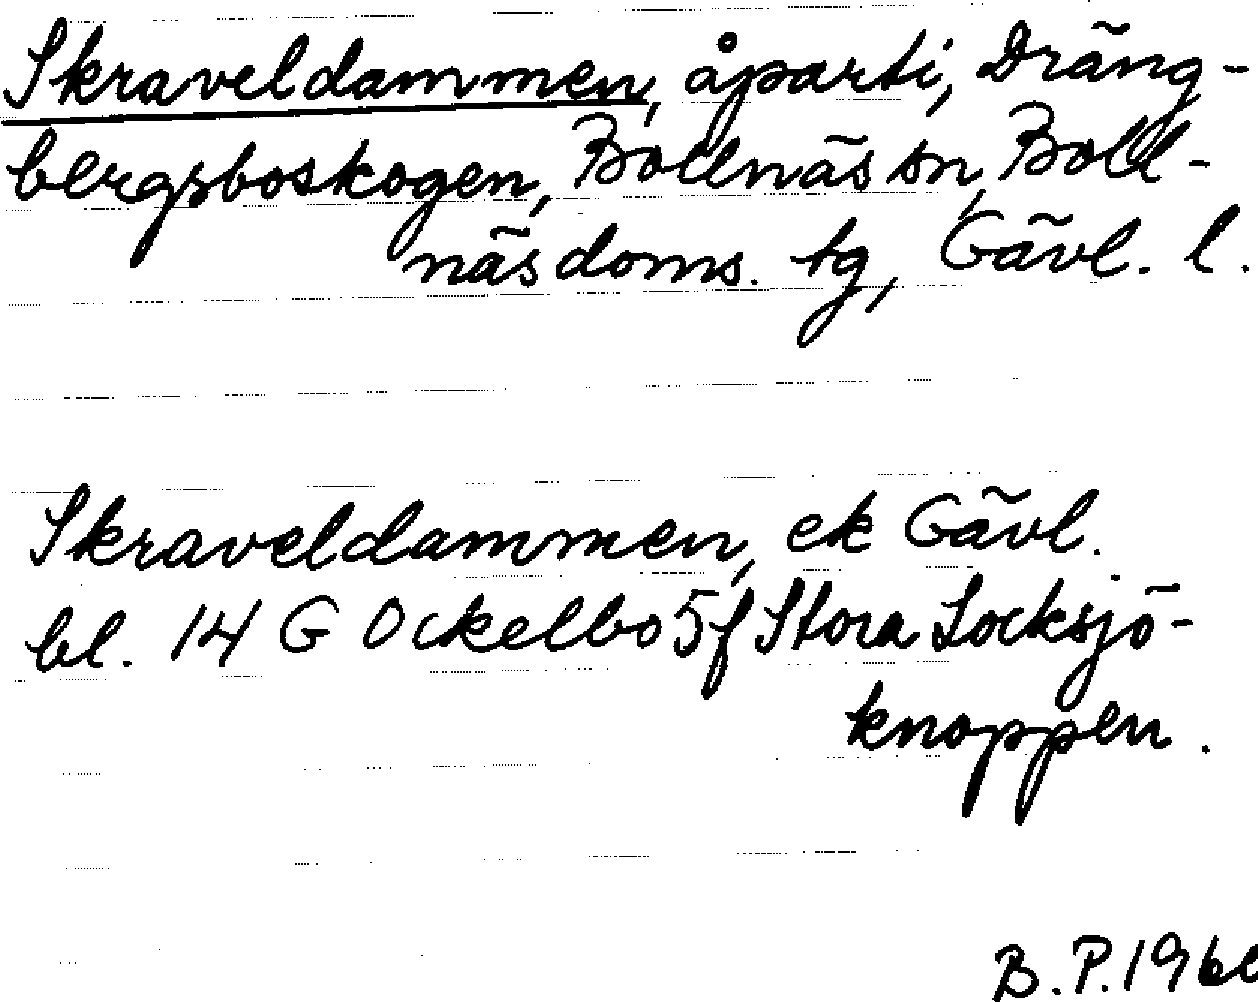 Skraveldammen, åparti, Dräng-
bergsboskogen, Bollnäs sn, Boll-
näs doms. tg, Gävl. l.
Skraveldammen, ek Gävl.
bl. 14 G Ockelbo 5f Stora Locksjö-
knoppen.
B.P. 1966